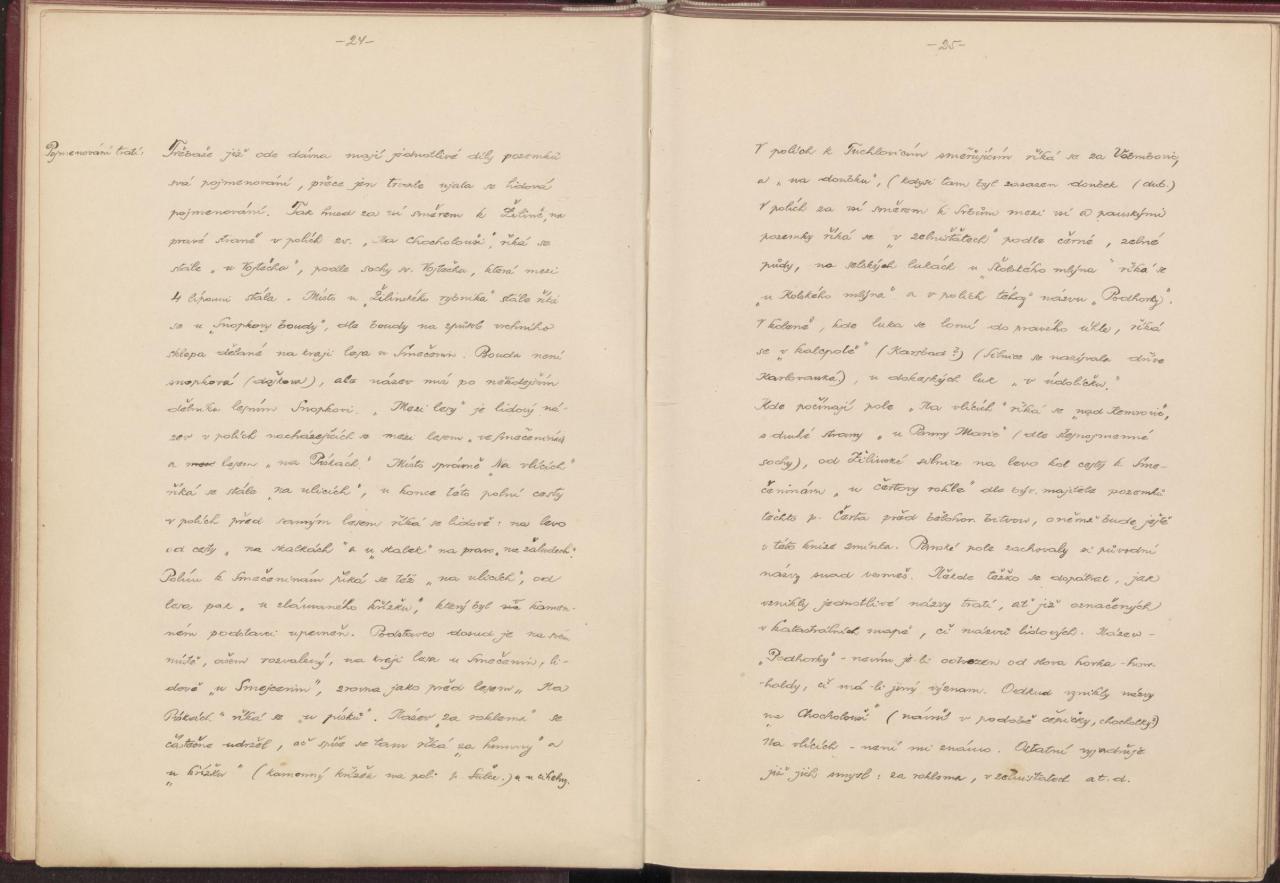 -24-
Pojmenování tratí:
Třebaže již ode dávna mají jednotlivé díly pozemků
svá pojmenování, přece jen trvale ujala se lidová
pojmenování. Tak hned za vsí směrem k Žilině, na
pravé straně v polích zv. „Na Chocholouši", říká se
stále „u Vojtěcha", podle sochy sv. Vojtěcha, která mezi
4 lípami stála. Místo u „Žilinského rybníka" stále říká
se u „Snopkovy boudy", dle boudy na způsob vrchního
sklepa dělané na kraji lesa u Smečenin. Bouda není
snopková (došková), ale název má po někdejším
dělníku lesním Snopkovi. „Mezi lesy" je lidový ná-
zev v polích nacházejících se mezi lesem „ve Smečeninách
a lesem „na Pískách." Místo správně „Na vlčích"
říká se stále „na ulicích", u konce této polní cesty
v polích před samým lesem říká se lidově: na levo
od cesty „na skalkách" a u „skalek" na pravo „na žaludech".
Polím k Smečeninám říká se též „na ulicích", od
lesa pak „u zlámaného křížku", který byl kamen-
ném podstavci upevněn. Podstavec dosud je na svém
místě, ovšem rozvalený, na kraji lesa u Smečenin, li-
dově „u Smejcenin", zrovna jako před lesem „Na
Pískách" říká se „u písků". Název „za rohlema" se
částečně udržel, ač spíše se tam říká „za humny" a
„u křížku" (kamenný křížek na poli p. ) a u cihelny.
-25-
V polích k Tuchlovicům směřujícím říká se za
a „na doubku", (kdysi tam byl zasazen doubek (dub.)
V polích za vsí směrem k Srbům mezi vsí a panskými
pozemky říká se „v zelništatech" podle černé, zelné
půdy, na selských lukách u „Školského mlýna" říká se
„u Kolského mlýna" a v polích téhož názvu „Podhorky".
V koleně, kde luka se lomí do pravého úhle, říká
se „v kalcpotě" (Karsbad?) (silnice se nazývala dříve
Karlovarská), u dokeských luk „v údolíčku."
Kde počínají pole „Na vlčích" říká se „nad Nemrovic,
z druhé strany „u Panny Marie" (dle stejnojmenné
sochy), od Žilinské silnice na levo kol cesty k Sme-
čeninám „u Čertovy rohle" dle býv. majitele pozemků
těchto p. Čerta před bělohor. bitvou, o němž bude ještě
v této knize zmínka. Panské pole zachovaly si původní
názvy snad vesměs. Někde těžko se dopátrat, jak
vznikly jednotlivé názvy tratí, ať již označených
v katastrálních mapě, či názvů lidových. Název -
„Podhorky" - nevím je-li odvozen od slova horka - hor-
-holdy, či má-li jiný význam. Odkud vznikly názvy
„na Chocholouši" (návrší v podobě čepičky, chocholky?)
Na vlčích - není mi známo. Ostatní vyjadřuje
již jich smysl: za rohlema, v zelništatech a t. d.